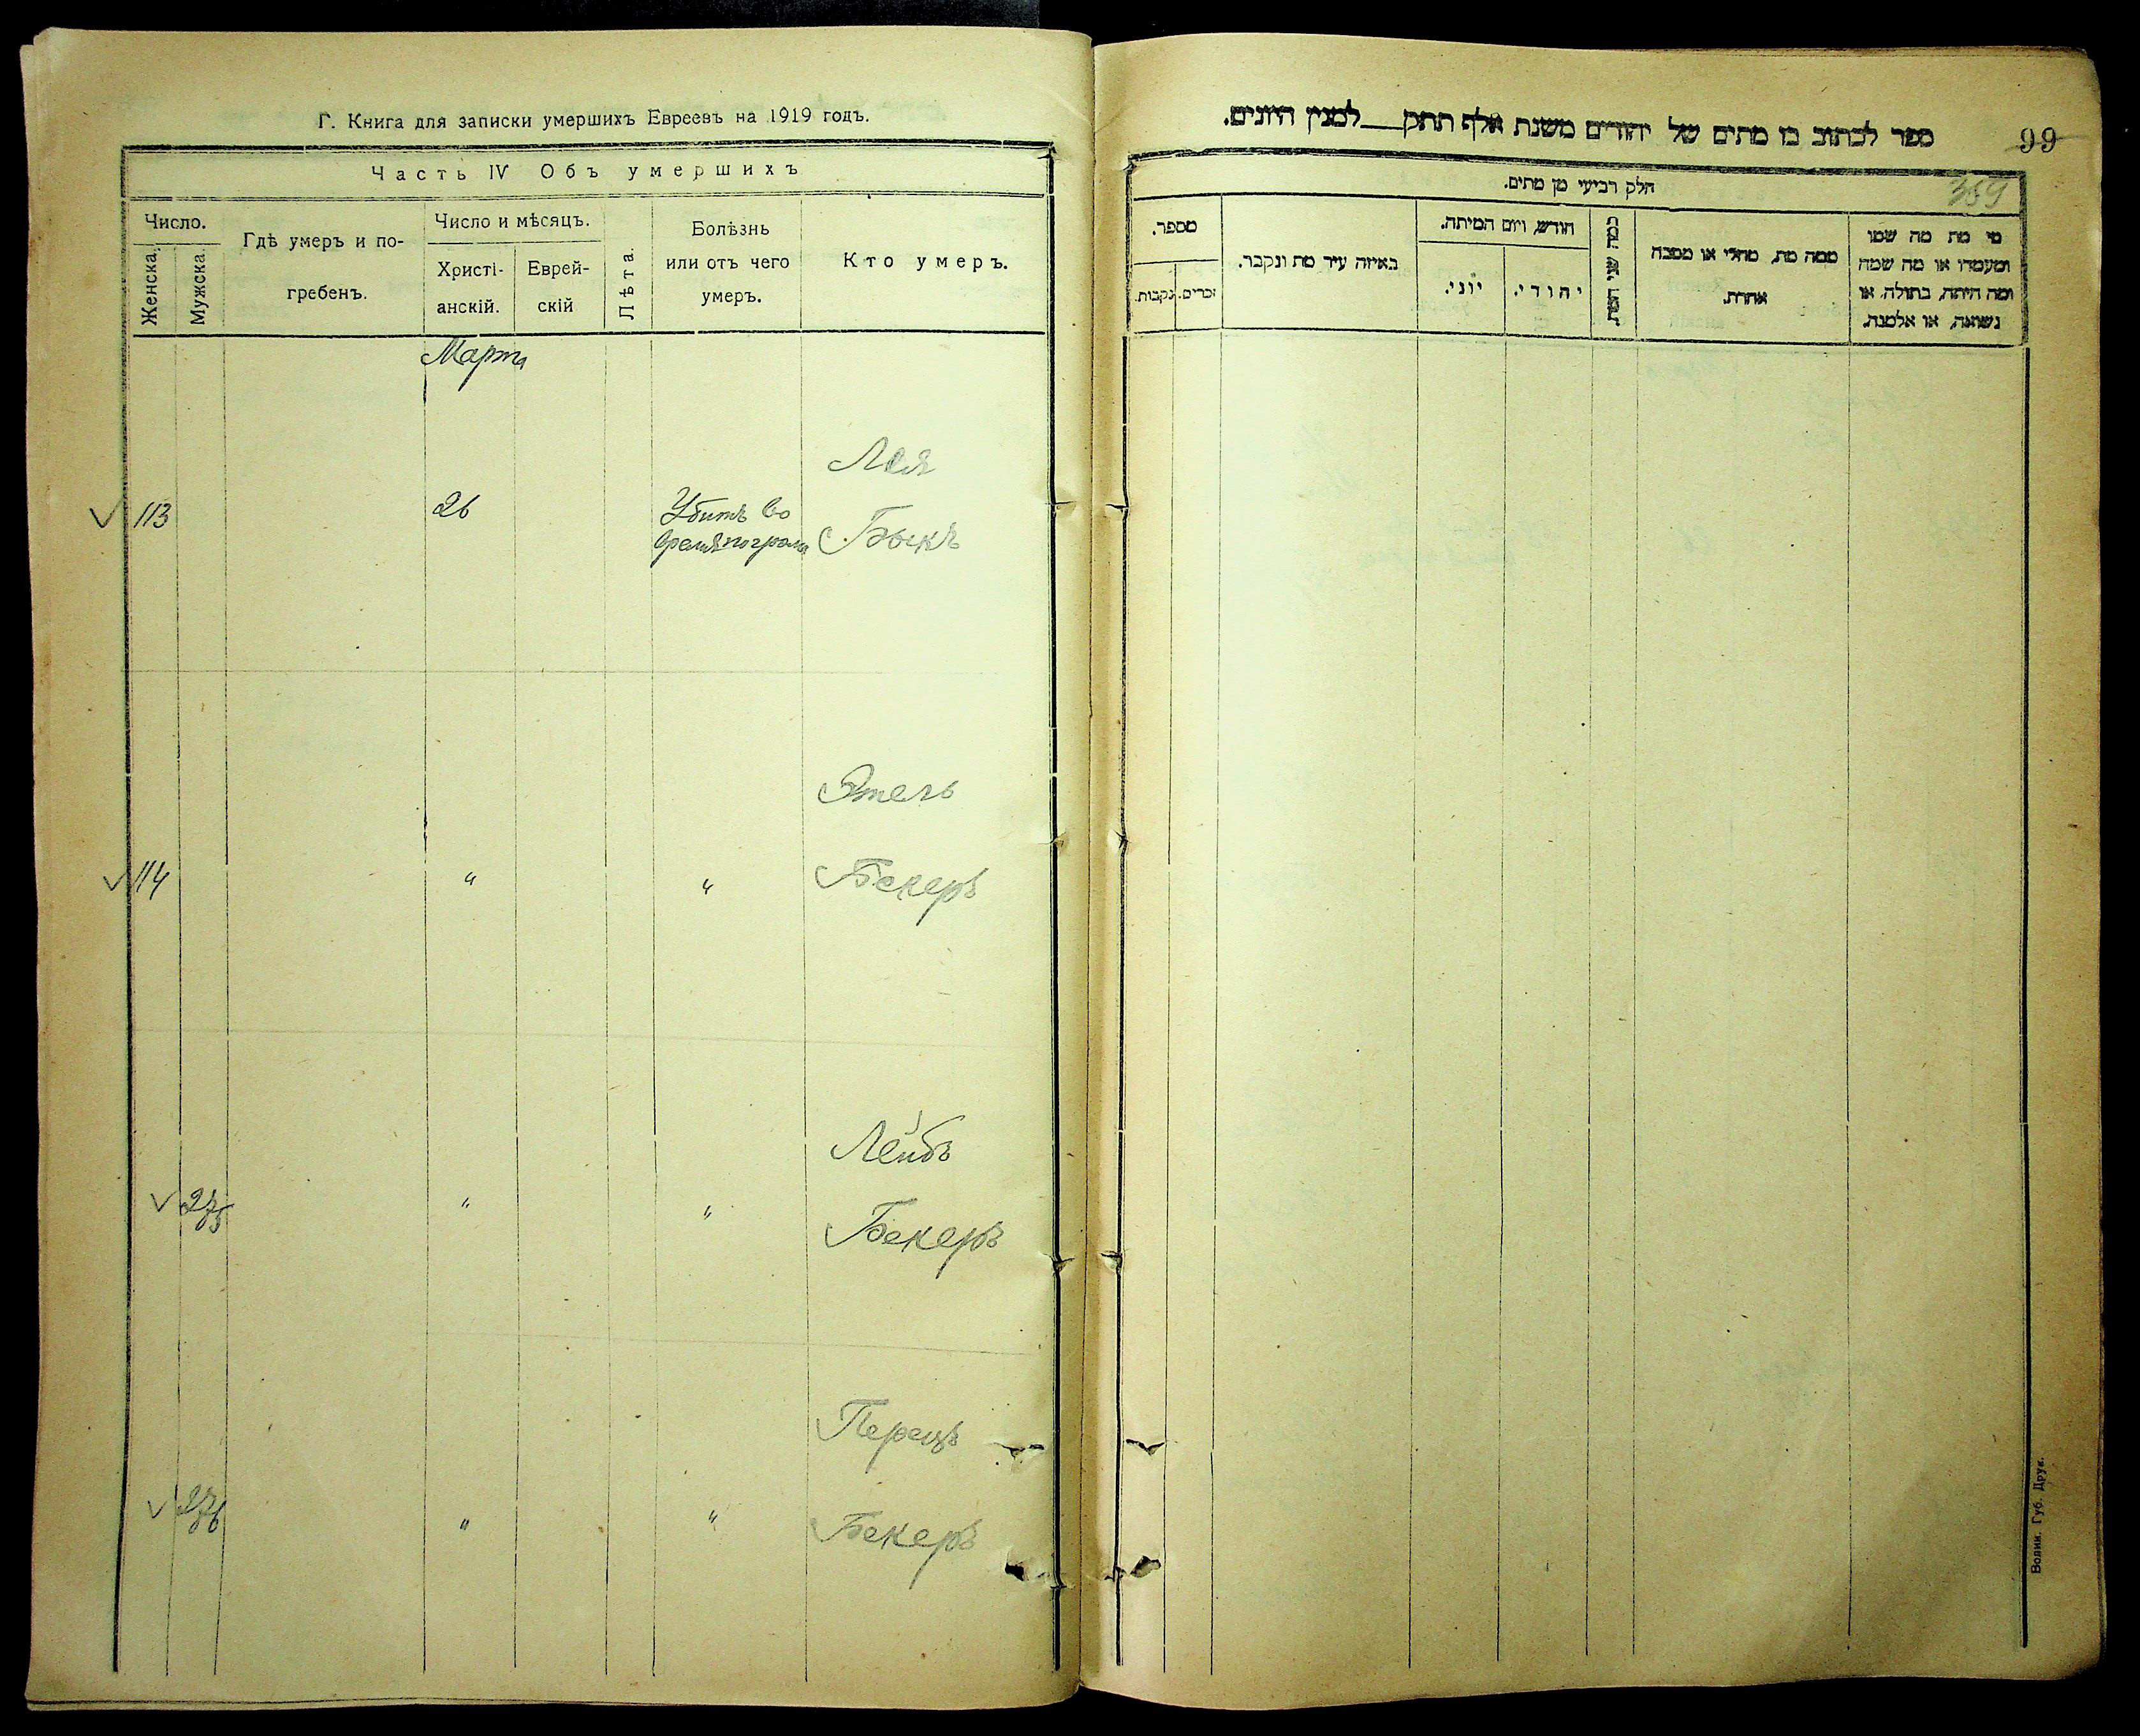 Г. Книга для записки умершихъ Евреевъ на 1919 годъ.
Часть IV Объ умершихъ
Число.
Женска.
Мужска.
Гдѣ умеръ и по-
гребенъ.
Число и мѣсяцъ.
Христі-
анскій.
Еврей-
скій
Лѣта.
Болѣзнь
или отъ чего
умеръ.
Кто умеръ.
Марта
Лея
113 26 Убитъ во
время погрома Быкъ
Этель
114 " " Бекеръ
Лейбъ
275 " " Бекеръ
Перецъ
276 " " Бекеръ
ספר לכתוב בו מתים של יהודים משנת אלף תתק למנין היונים.
99
359
חלק רביעי מן מתים.
מספר.
נקבות.
זכרים.
באיזה עיר מת ונקבר.
חודש, ויום המיתה.
יוני.
יהודי.
כמה שני המת.
ממה מת, מחלי או מסבה
אחרת.
מי מת מה שמו
ומעמדו או מה שמה
ומה היתה, בתולה, או
נשואה, או אלמנה.
Волин. Губ. Друк.